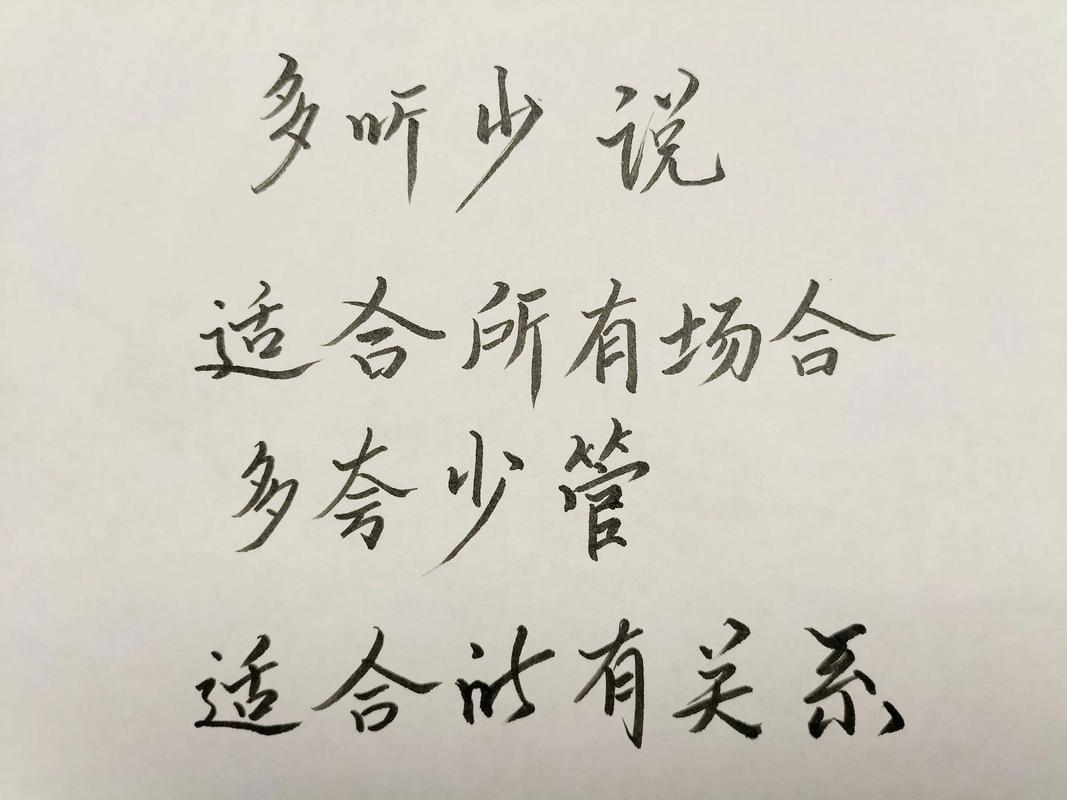 多听少说
适合所有场合
多夸少管
适合所有关系